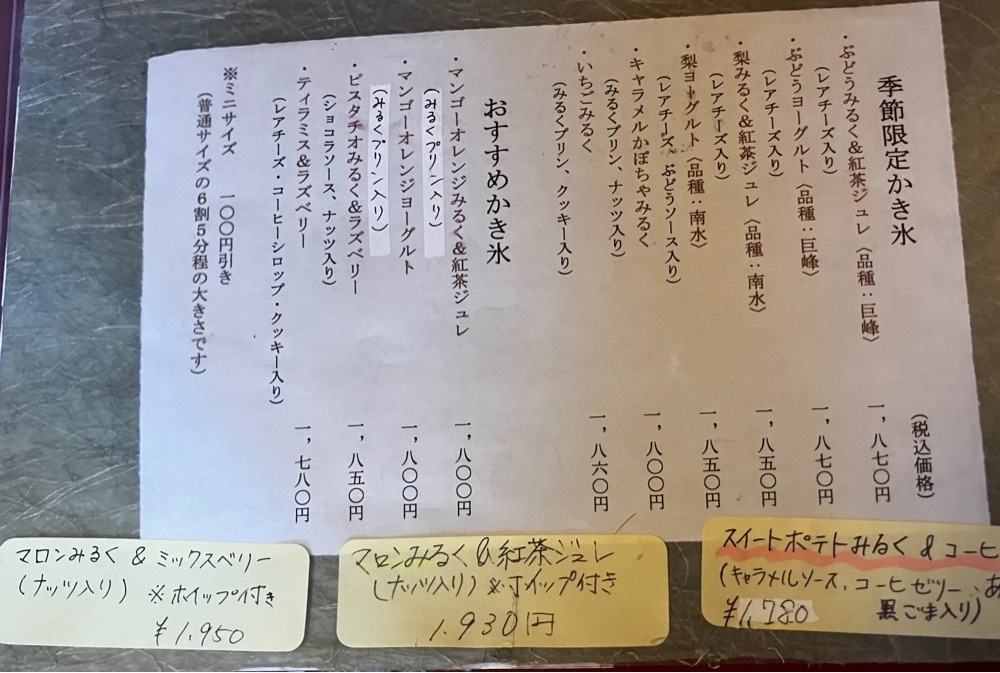 季節限定かき氷
（税込価格）
・ぶどうみるく＆紅茶ジュレ（品種：巨峰） 一，八七〇円
（レアチーズ入り）
・ぶどうヨーグルト（品種：巨峰） 一，八七〇円
（レアチーズ入り）
・梨みるく＆紅茶ジュレ（品種：南水） 一，八五〇円
（レアチーズ入り）
・梨ヨーグルト（品種：南水） 一，八五〇円
（レアチーズ、ぶどうソース入り）
・キャラメルかぼちゃみるく 一，八〇〇円
（みるくプリン、ナッツ入り）
・いちごみるく 一，八六〇円
（みるくプリン、クッキー入り）
おすすめかき氷
・マンゴーオレンジみるく＆紅茶ジュレ 一，八〇〇円
（みるくプリン入り）
・マンゴーオレンジヨーグルト 一，八〇〇円
（みるくプリン入り）
・ピスタチオみるく＆ラズベリー 一，八五〇円
（ショコラソース、ナッツ入り）
・ティラミス＆ラズベリー 一，七八〇円
（レアチーズ・コーヒーシロップ・クッキー入り）
※ミニサイズ 一〇〇円引き
（普通サイズの６割５分程の大きさです）
マロンみるく & ミックスベリー
(ナッツ入り) ※ホイップ付き
¥1,950
マロンみるく & 紅茶ジュレ
(ナッツ入り) ※ホイップ付き
1,930円
スイートポテトみるく & コーヒ
(キャラメルソース、コーヒーゼリー、あ
黒ごま入り)
¥1,780